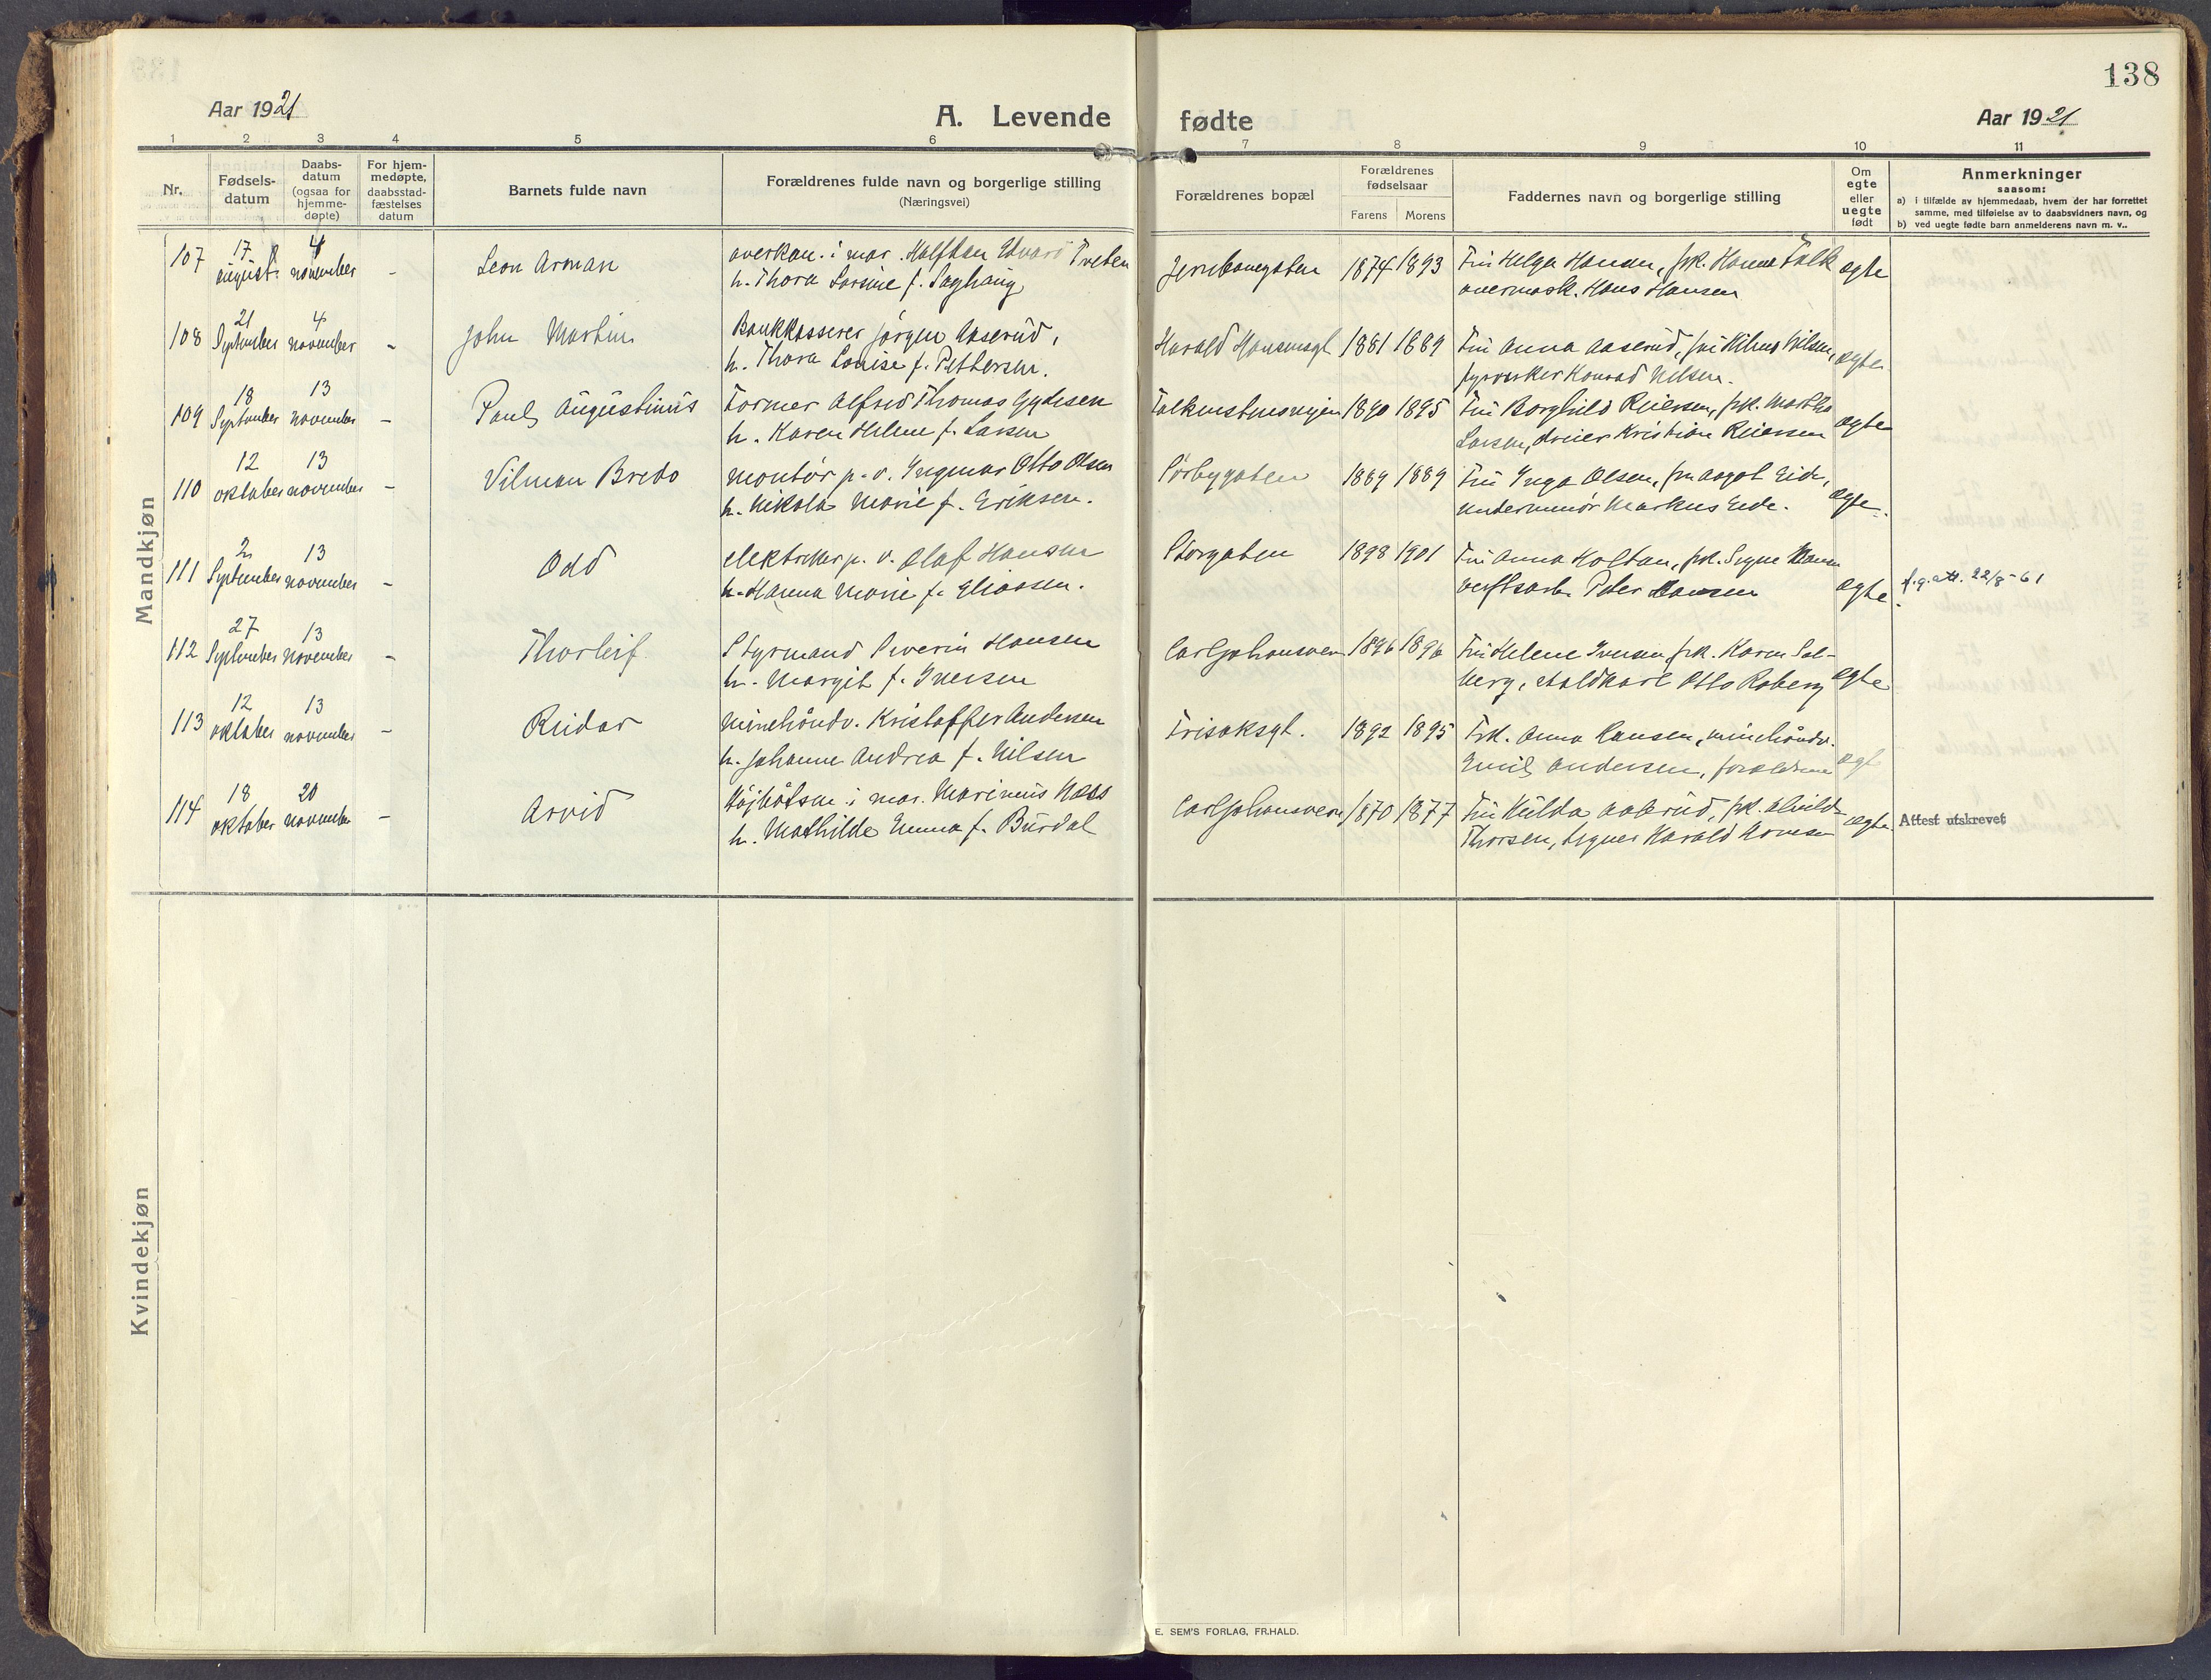 138
Aar 1921
A. Levende fødte
Aar 1921
1 2 3 4 5 6 7 8 9 10 11
Nr.
Fødsels-
datum
Daabs-
datum
(ogsaa for
hjemme-
døpte)
For hjem-
medøpte,
daabsstad-
fæstelses
datum
Barnets fulde navn
Forældrenes fulde navn og borgerlige stilling
(Næringsvei)
Forældrenes bopæl
Forældrenes
fødselsaar
Farens Morens
Faddernes navn og borgerlige stilling
Om
egte
eller
uegte
født
Anmerkninger
saasom:
a) i tilfælde av hjemmedaab, hvem der har forrettet
samme, med tilføielse av to daabsvidners navn, og
b) ved uegte fødte barn anmelderens navn m. v..
Mandkjøn
107 17 august 4 november - Leon Arman
overkan. i mar. Halfdan Edvard Tveten
h. Thora Lorsine f. Saghaug
Jernbanegaten 1874 1893
Fru Helga Hansen, frk. Hanna Falk
overmask. Hans Hansen
egte
108 21 September 4 november - John Martin
Bankkasserer Jørgen Aaserud,
h. Thora Louise f. Pettersen.
Harald Hansensgt 1881 1889
Fru Anna Aaserud, fru Nilsen,
fyrverker Konrad Nilsen.
egte
109 18 September 13 november - Paul Augustinus
Former Alfred Thomas Gydesen
h. Karen Helene f. Larsen
Falkenstensvejen 1890 1895
Fru Borghild Reiersen, frk. Martha
Larsen, dreier Kristian Reiersen
egte
110 12 oktober 13 november - Vilman Bredo
montør p. v. Ingmar Otto Olsen
h. Nikola Marie f. Eriksen.
Sørbygaten 1889 1889
Fru Inga Olsen, fru Aagot Eide,
underminør Markus Eide.
egte.
111 2 September 13 november - Odd
elektriker p. v. Olaf Hansen
h. Hanna Marie f. Eliassen.
Storgaten 1898 1901
Fru Anna Holtan, frk. Signe Hansen
verftsarb. Peter Hansen
egte
f.g.att. 22/8-61
112 27 September 13 november - Thorleif
Styrmand Severin Hansen
h. Margit f. Iversen
Carljohansvern 1896 1896
Fru Helene Iversen, frk. Karen Sol-
berg, staldkarl Otto Roberg
egte
113 12 oktober 13 november - Reidar
minehåndv. Kristoffer Andersen
h. Johanne Andrea f. Nilsen
Frisaksgt. 1892 1895
Frk. Anna Hansen, minehåndv.
Emil Andersen, forældrene
egt
114 18 oktober 20 november - Arvid
Højbåtsm. i mar. Marinius Næss
h. Mathilde Emma f. Burdal
Carljohansvern 1870 1877
Fru Hulda Aabrud, frk. Alvilde
Thorsen, tegner Harald
egte
Attest utskrevet
Kvindekjøn
E. SEM'S FORLAG, FR.HALD.